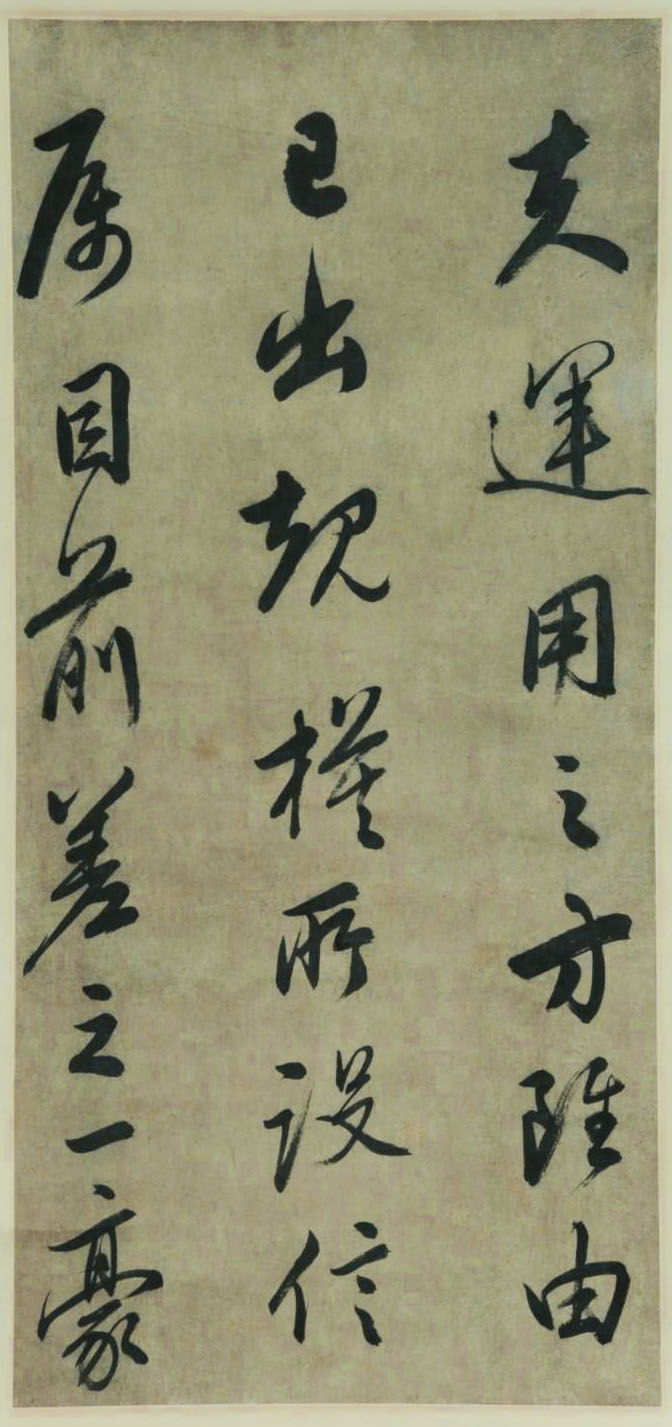 夫運用之方雖由
己出規模所設信
属目前差之一豪